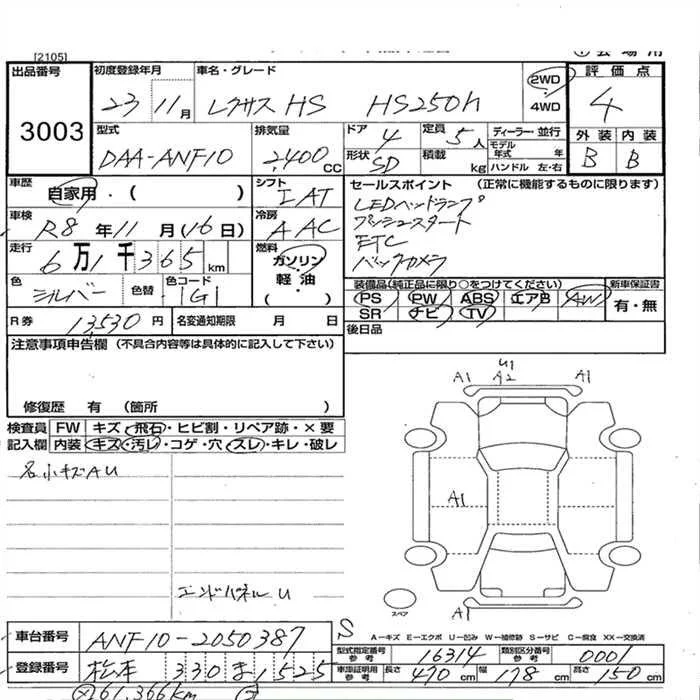 [2105]
出品番号 初度登録年月 車名・グレード 2WD 評価点
3003 23 11月 レクサスHS HS250h 4WD 4
型式 排気量 ドア 4 定員 5人 ディーラー・並行 外装 内装
DAA-ANF10 2,400cc 形状 SD 積載 kg モデル年式 年 ハンドル 左・右 B B
車歴 自家用・( ) シフト IAT セールスポイント (正常に機能するものに限ります)
車検 R8年11月(16日) 冷房 AAC LEDヘッドランプ
プッシュスタート
走行 6万1千365km 燃料 ガソリン・軽油 ETC
( ) バックカメラ
色 シルバー 色替 色コード 1G1 装備品(純正品に限り○をつけてください) 新車保証書
PS PW ABS エアB AW 有・無
R券 13,530円 名変通知期限 月 日 SR ナビ TV
後日品
注意事項申告欄 (不具合内容等は具体的に記入して下さい)
修復歴 有 (箇所 )
検査員記入欄 FW キズ・飛石・ヒビ割・リペア跡・×要
内装 キズ・汚レ・コゲ・穴・スレ・キレ・破レ
名小キズAU
エンドパネルU
A1 U1 A2 A1
A1
A1
スペア
S
A－キズ E－エクボ U－凹み W－補修跡 S－サビ C－腐食 XX－交換済
車台番号 ANF10-2050387 型式指定番号 参考 16314 類別区分番号 参考 0001
登録番号 松本 330 ま 1525 車庫証明用 参考 長さ 470cm 幅 178cm 高さ 150cm
61,366km